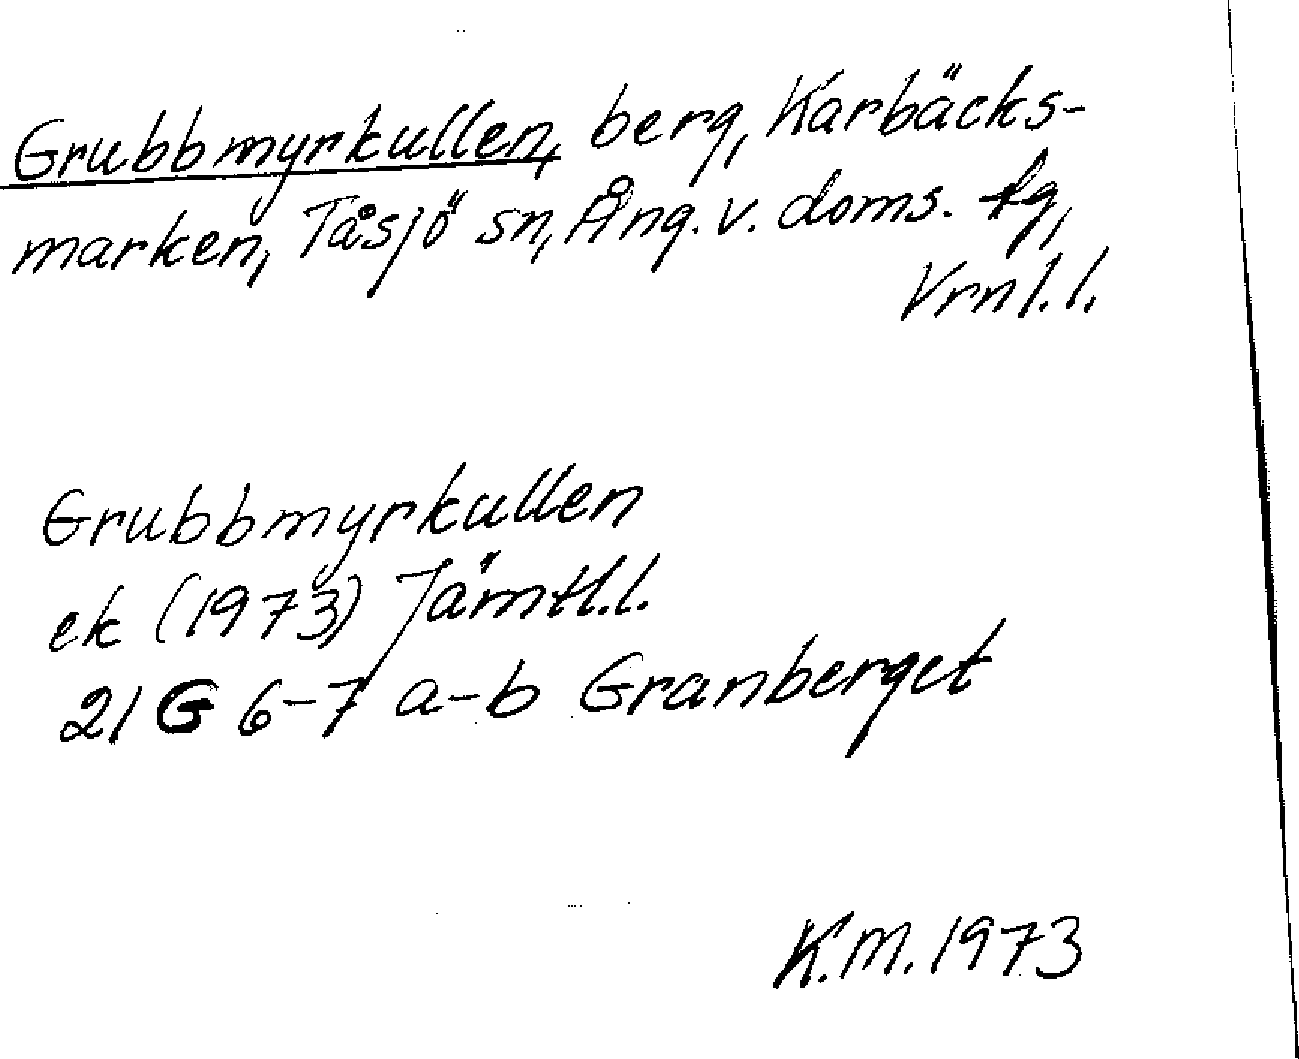 Grubbmyrkullen, berg, Karbäcks-
marken, Tåsjö sn, Ång. v. doms. fg,
Vrnl.l.
Grubbmyrkullen
ek (1973) Jämtl.l.
21 G 6-7 a-b Granberget
K.M. 1973